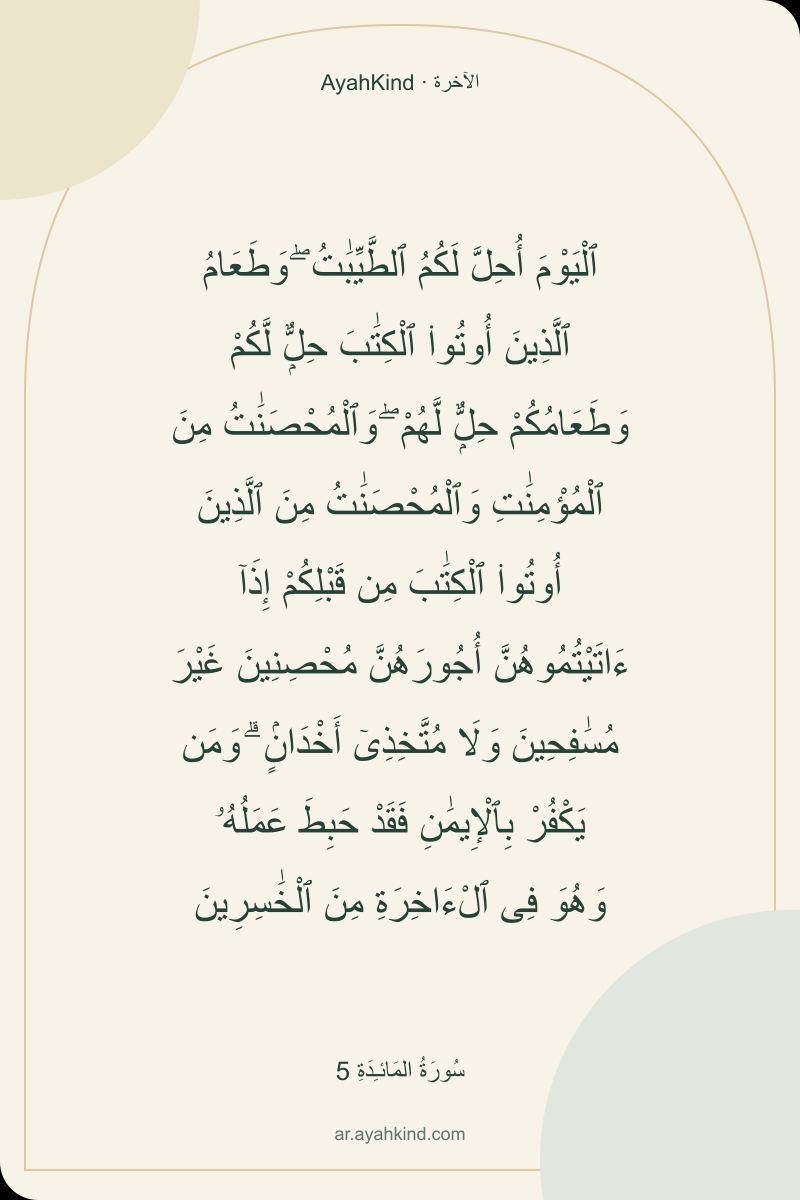 AyahKind · الآخرة
ٱلْيَوْمَ أُحِلَّ لَكُمُ ٱلطَّيِّبَٰتُ ۖ وَطَعَامُ
ٱلَّذِينَ أُوتُوا۟ ٱلْكِتَٰبَ حِلٌّۭ لَّكُمْ
وَطَعَامُكُمْ حِلٌّۭ لَّهُمْ ۖ وَٱلْمُحْصَنَٰتُ مِنَ
ٱلْمُؤْمِنَٰتِ وَٱلْمُحْصَنَٰتُ مِنَ ٱلَّذِينَ
أُوتُوا۟ ٱلْكِتَٰبَ مِن قَبْلِكُمْ إِذَآ
ءَاتَيْتُمُوهُنَّ أُجُورَهُنَّ مُحْصِنِينَ غَيْرَ
مُسَٰفِحِينَ وَلَا مُتَّخِذِىٓ أَخْدَانٍۢ ۗ وَمَن
يَكْفُرْ بِٱلْإِيمَٰنِ فَقَدْ حَبِطَ عَمَلُهُۥ
وَهُوَ فِى ٱلْءَاخِرَةِ مِنَ ٱلْخَٰسِرِينَ
سُورَةُ المَائـِدَةِ 5
ar.ayahkind.com